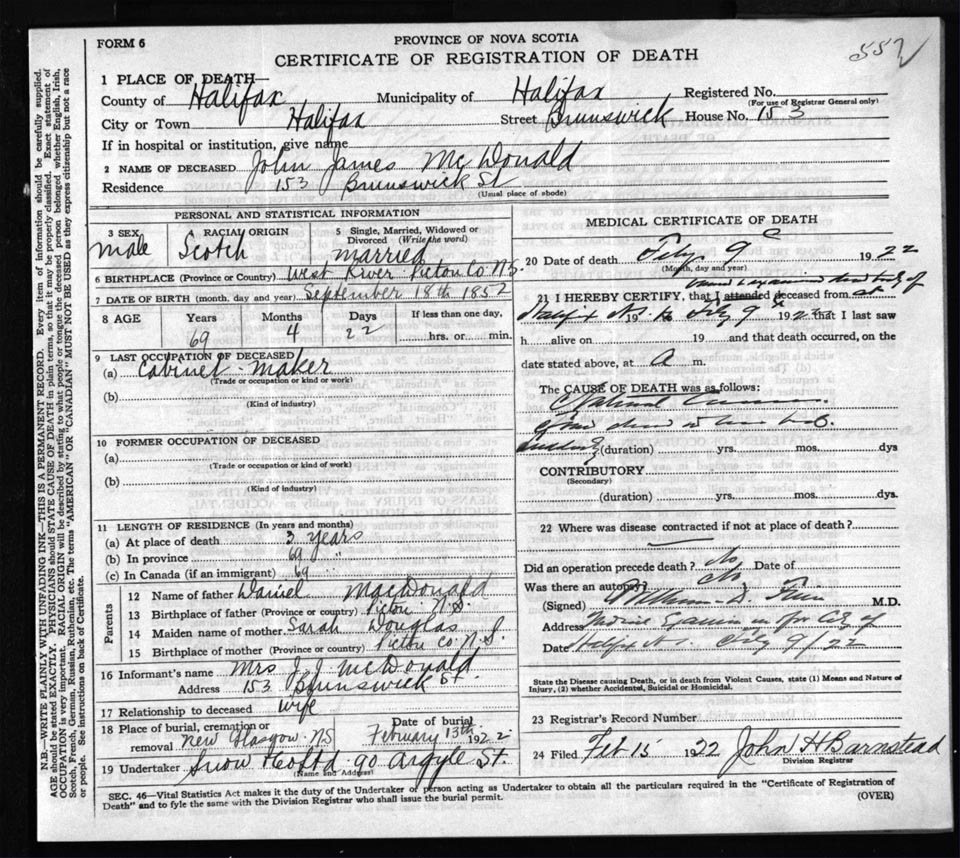 N.B.—WRITE PLAINLY WITH UNFADING INK—THIS IS A PERMANENT RECORD. Every item of information should be carefully supplied.
AGE should be stated EXACTLY. PHYSICIANS should STATE CAUSE OF DEATH in plain terms, so that it may be properly classified. Exact statement of
OCCUPATION is very important. RACIAL ORIGIN will be described by stating to what people or tongue the deceased person belonged, whether English, Irish,
Scotch, French, German, Russian, Ruthenian, etc. The terms "AMERICAN" OR "CANADIAN" MUST NOT BE USED as they express citizenship but not a race
or people. See instructions on back of Certificate.
FORM 6
PROVINCE OF NOVA SCOTIA
552
CERTIFICATE OF REGISTRATION OF DEATH
1 PLACE OF DEATH—
County of Halifax Municipality of Halifax Registered No.
(For use of Registrar General only)
City or Town Halifax Street Brunswick House No. 153
If in hospital or institution, give name
2 NAME OF DECEASED John James McDonald
Residence 153 Brunswick St
(Usual place of abode)
PERSONAL AND STATISTICAL INFORMATION
3 SEX male RACIAL ORIGIN Scotch 5 Single, Married, Widowed or Divorced (Write the word) married
6 BIRTHPLACE (Province or Country) West River Pictou Co N.S.
7 DATE OF BIRTH (month, day and year) September 18th 1852
8 AGE Years Months Days If less than one day,
69 4 22 hrs. or min.
9 LAST OCCUPATION OF DECEASED
(a) Cabinet-maker
(Trade or occupation or kind or work)
(b)
(Kind of industry)
10 FORMER OCCUPATION OF DECEASED
(a)
(Trade or occupation or kind of work)
(b)
(Kind of industry)
11 LENGTH OF RESIDENCE (In years and months)
(a) At place of death 3 years
(b) In province 69 "
(c) In Canada (if an immigrant) 69 "
Parents
12 Name of father Daniel MacDonald
13 Birthplace of father (Province or country) Pictou N.S.
14 Maiden name of mother Sarah Douglas
15 Birthplace of mother (Province or country) Pictou Co N.S
16 Informant's name Mrs J. J. McDonald
Address 153 Brunswick St.
17 Relationship to deceased wife
18 Place of burial, cremation or removal New Glasgow NS Date of burial February 13th 1922
19 Undertaker Snow & Co Ltd 90 Argyle St.
(Name and Address)
MEDICAL CERTIFICATE OF DEATH
20 Date of death Feby 9 1922
(Month, day and year)
21 I HEREBY CERTIFY, that I attended deceased from
Halifax N.S. 19 to Feby 9 1922 that I last saw
h alive on 19 and that death occurred, on the
date stated above, at A m.
The CAUSE OF DEATH was as follows:
(duration) yrs. mos. dys
CONTRIBUTORY
(Secondary)
(duration) yrs. mos. dys.
22 Where was disease contracted if not at place of death?
Did an operation precede death? No Date of
Was there an autopsy? No
(Signed) M.D.
Address for City of
Date Feby 9/22
State the Disease causing Death, or in death from Violent Causes, state (1) Means and Nature of
Injury, (2) whether Accidental, Suicidal or Homicidal.
23 Registrar's Record Number
24 Filed Feb 15 1922 John H Barnstead
Division Registrar
SEC. 46—Vital Statistics Act makes it the duty of the Undertaker or person acting as Undertaker to obtain all the particulars required in the "Certificate of Registration of
Death" and to fyle the same with the Division Registrar who shall issue the burial permit.
(OVER)